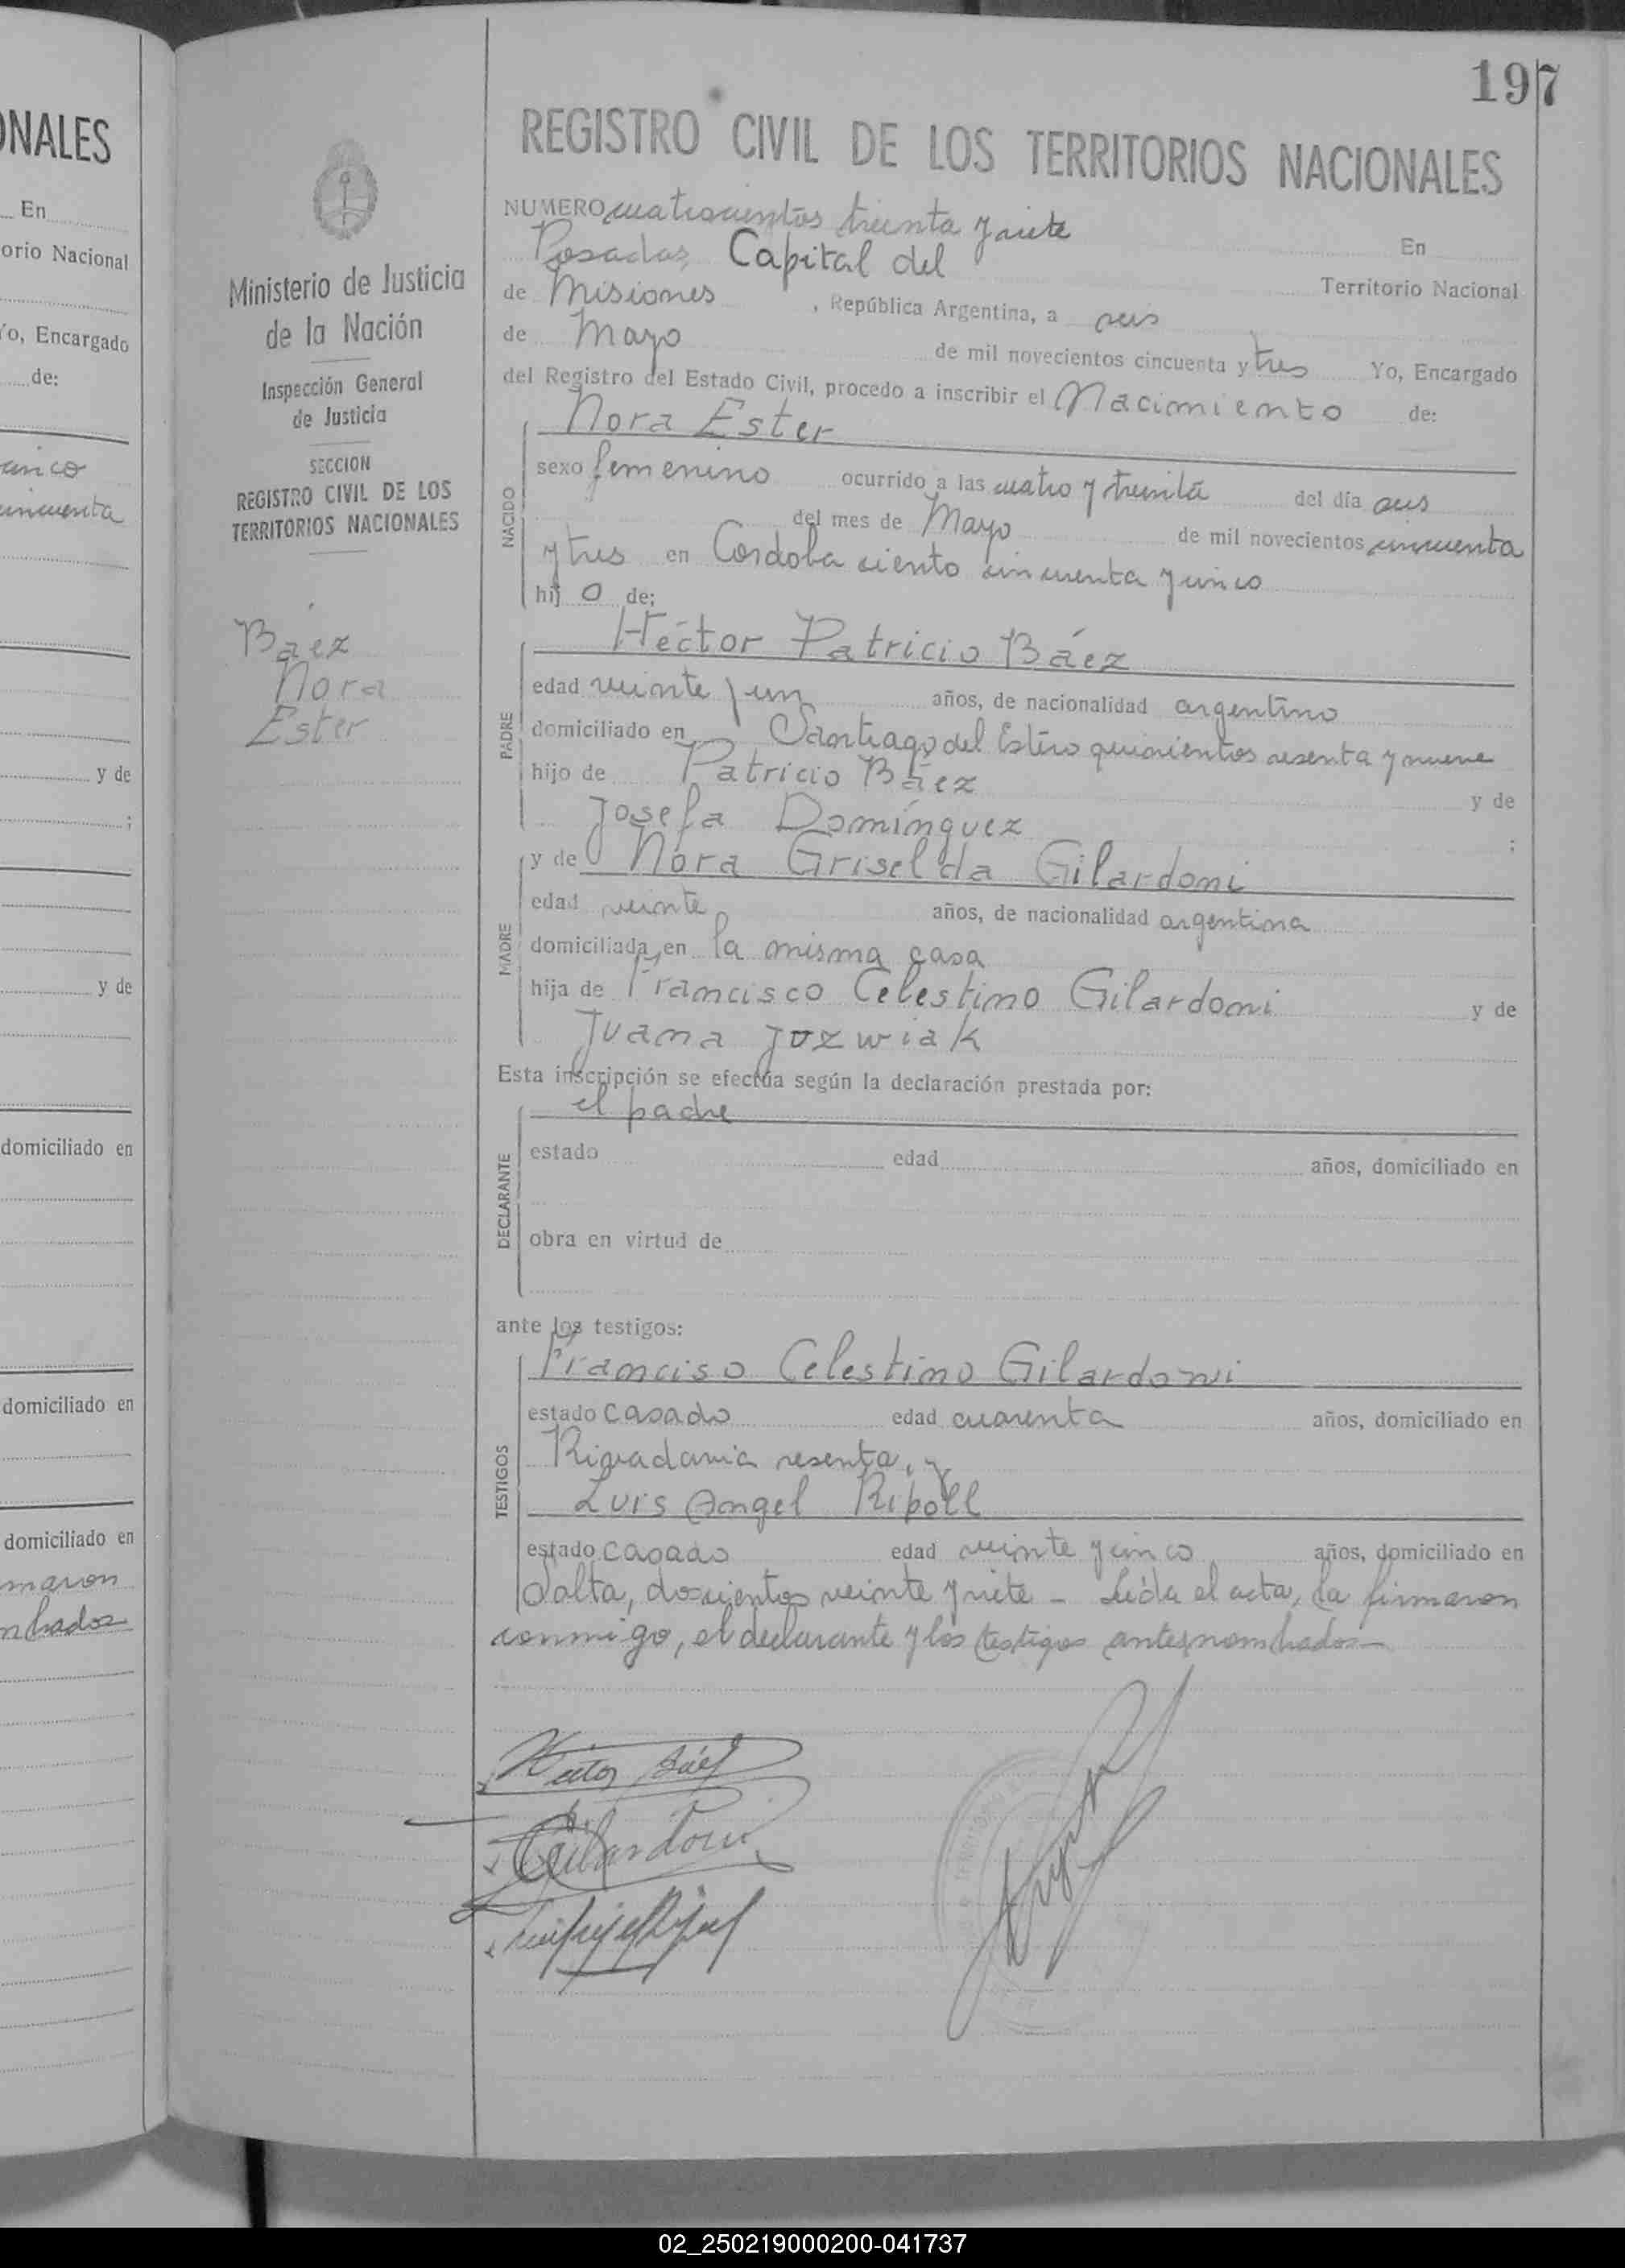 197
ONALES
En
orio Nacional
Yo, Encargado
de:
cinco
cincuenta
y de
;
y de
domiciliado en
domiciliado en
domiciliado en
maron
nbrados
Ministerio de Justicia
de la Nación
Inspección General
de Justicia
SECCION
REGISTRO CIVIL DE LOS
TERRITORIOS NACIONALES
Báez
Nora
Ester
REGISTRO CIVIL DE LOS TERRITORIOS NACIONALES
NUMERO cuatrocientos treinta y siete En
Posadas, Capital del Territorio Nacional
de Misiones, República Argentina, a seis
de Mayo de mil novecientos cincuenta y tres Yo, Encargado
del Registro del Estado Civil, procedo a inscribir el Nacimiento de:
Nora Ester
NACIDO
sexo femenino ocurrido a las cuatro y treinta del día seis
del mes de Mayo de mil novecientos cincuenta
y tres en Cordoba ciento cincuenta y cinco
hij o de:
Héctor Patricio Báez
PADRE
edad veinte y un años, de nacionalidad argentino
domiciliado en Santiago del Estero quinientos sesenta y nueve
hijo de Patricio Báez y de
Josefa Domínguez ;
y de Nora Griselda Gilardoni
MADRE
edad veinte años, de nacionalidad argentina
domiciliada en la misma casa
hija de Francisco Celestino Gilardoni y de
Juana Jozwiak
Esta inscripción se efectúa según la declaración prestada por:
el padre
DECLARANTE
estado edad años, domiciliado en
obra en virtud de
ante los testigos:
Franciso Celestino Gilardoni
TESTIGOS
estado casado edad cuarenta años, domiciliado en
Rivadavia sesenta, y
Luis Angel Ripoll
estado casado edad veinte y cinco años, domiciliado en
Salta, doscientos veinte y siete - Leída el acta, la firmaron
conmigo, el declarante y los testigos antes nombrados-
Héctor Báez
Gilardoni
02_250219000200-041737